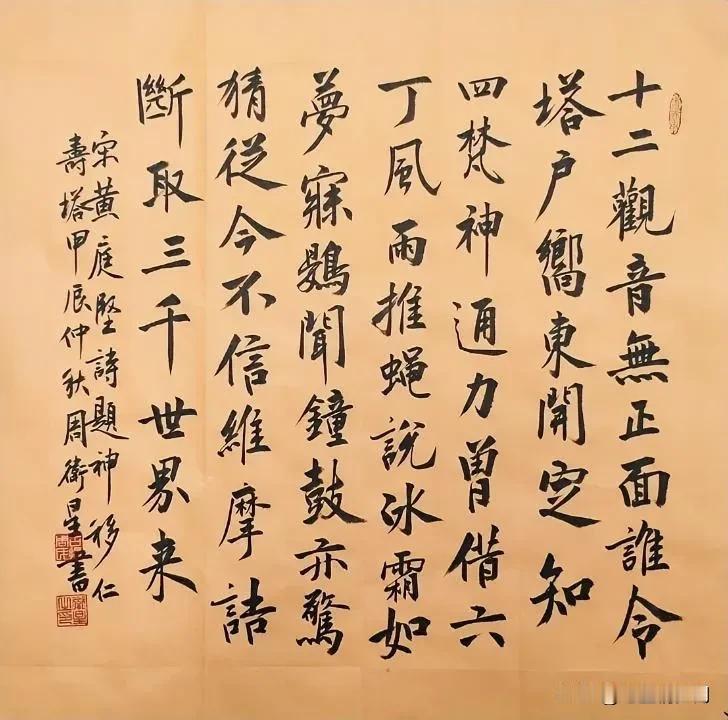 十二觀音無正面誰令
塔戶嚮東開定知
四梵神通力曾借六
丁風雨推蝇說冰霜如
夢寐鷃聞鐘鼓亦驚
猜從今不信維摩詰
斷取三千世界来
宋黄庭堅詩題神移仁
壽塔甲辰仲秋周衛星書